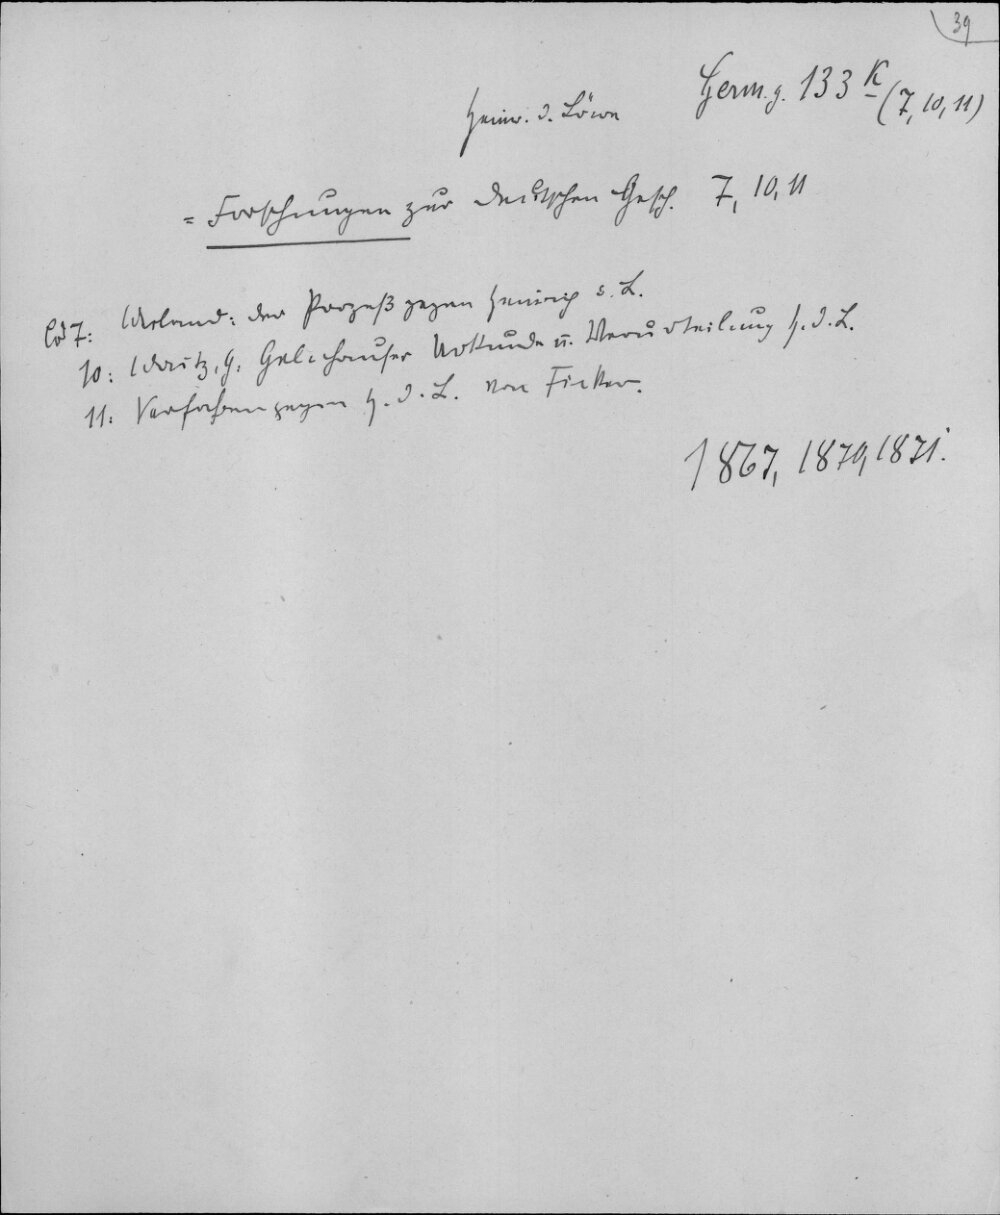 39
Germ. g. 133 K (7, 10, 11)
Heinr. d. Löwe
= Forschungen zur deutschen Gesch. 7, 10, 11
Bd 7: Weiland: der Prozeß gegen Heinrich d. L.
10: Waitz, G. Gelnhauser Urkunde u. Verurteilung H. d. L.
11: Verfahren gegen H. d. L. von Ficker.
1867, 1870, 1871.